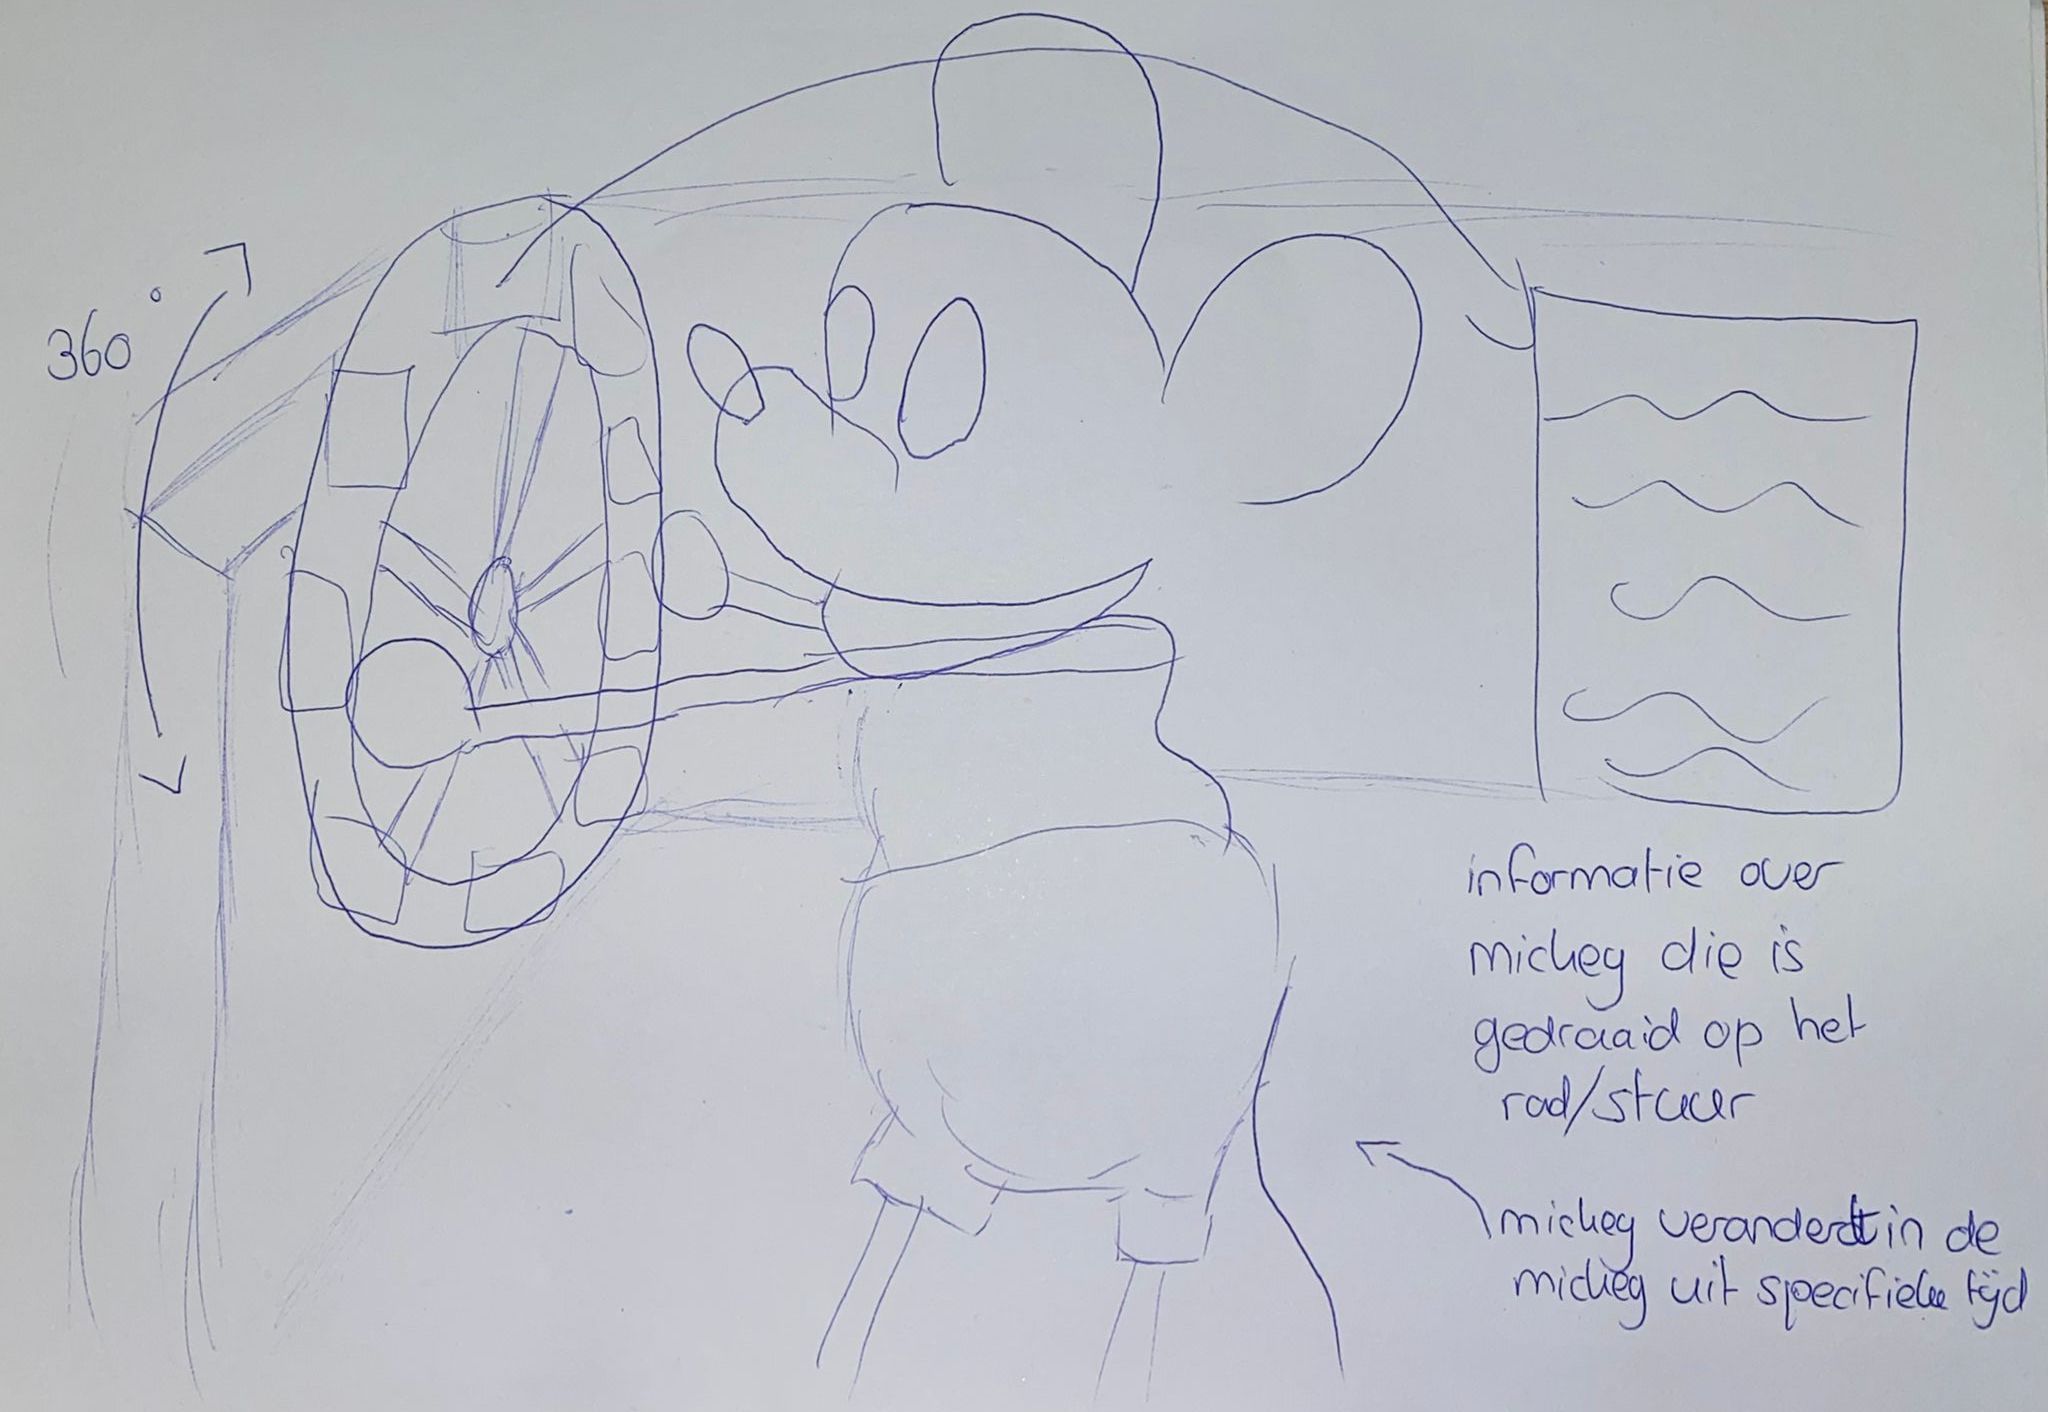 360°
informatie over
mickey die is
gedraaid op het
rad/stuur
mickey veranderdt in de
mickey uit specifieke tijd